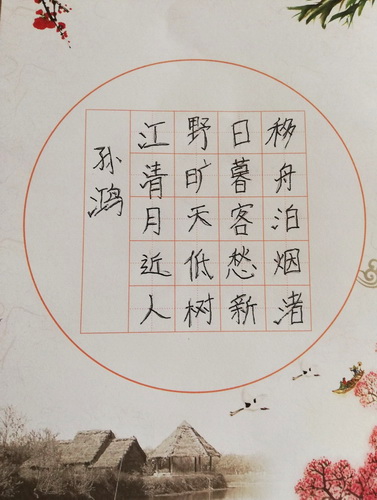 移舟泊烟渚
日暮客愁新
野旷天低树
江清月近人
孙鸿